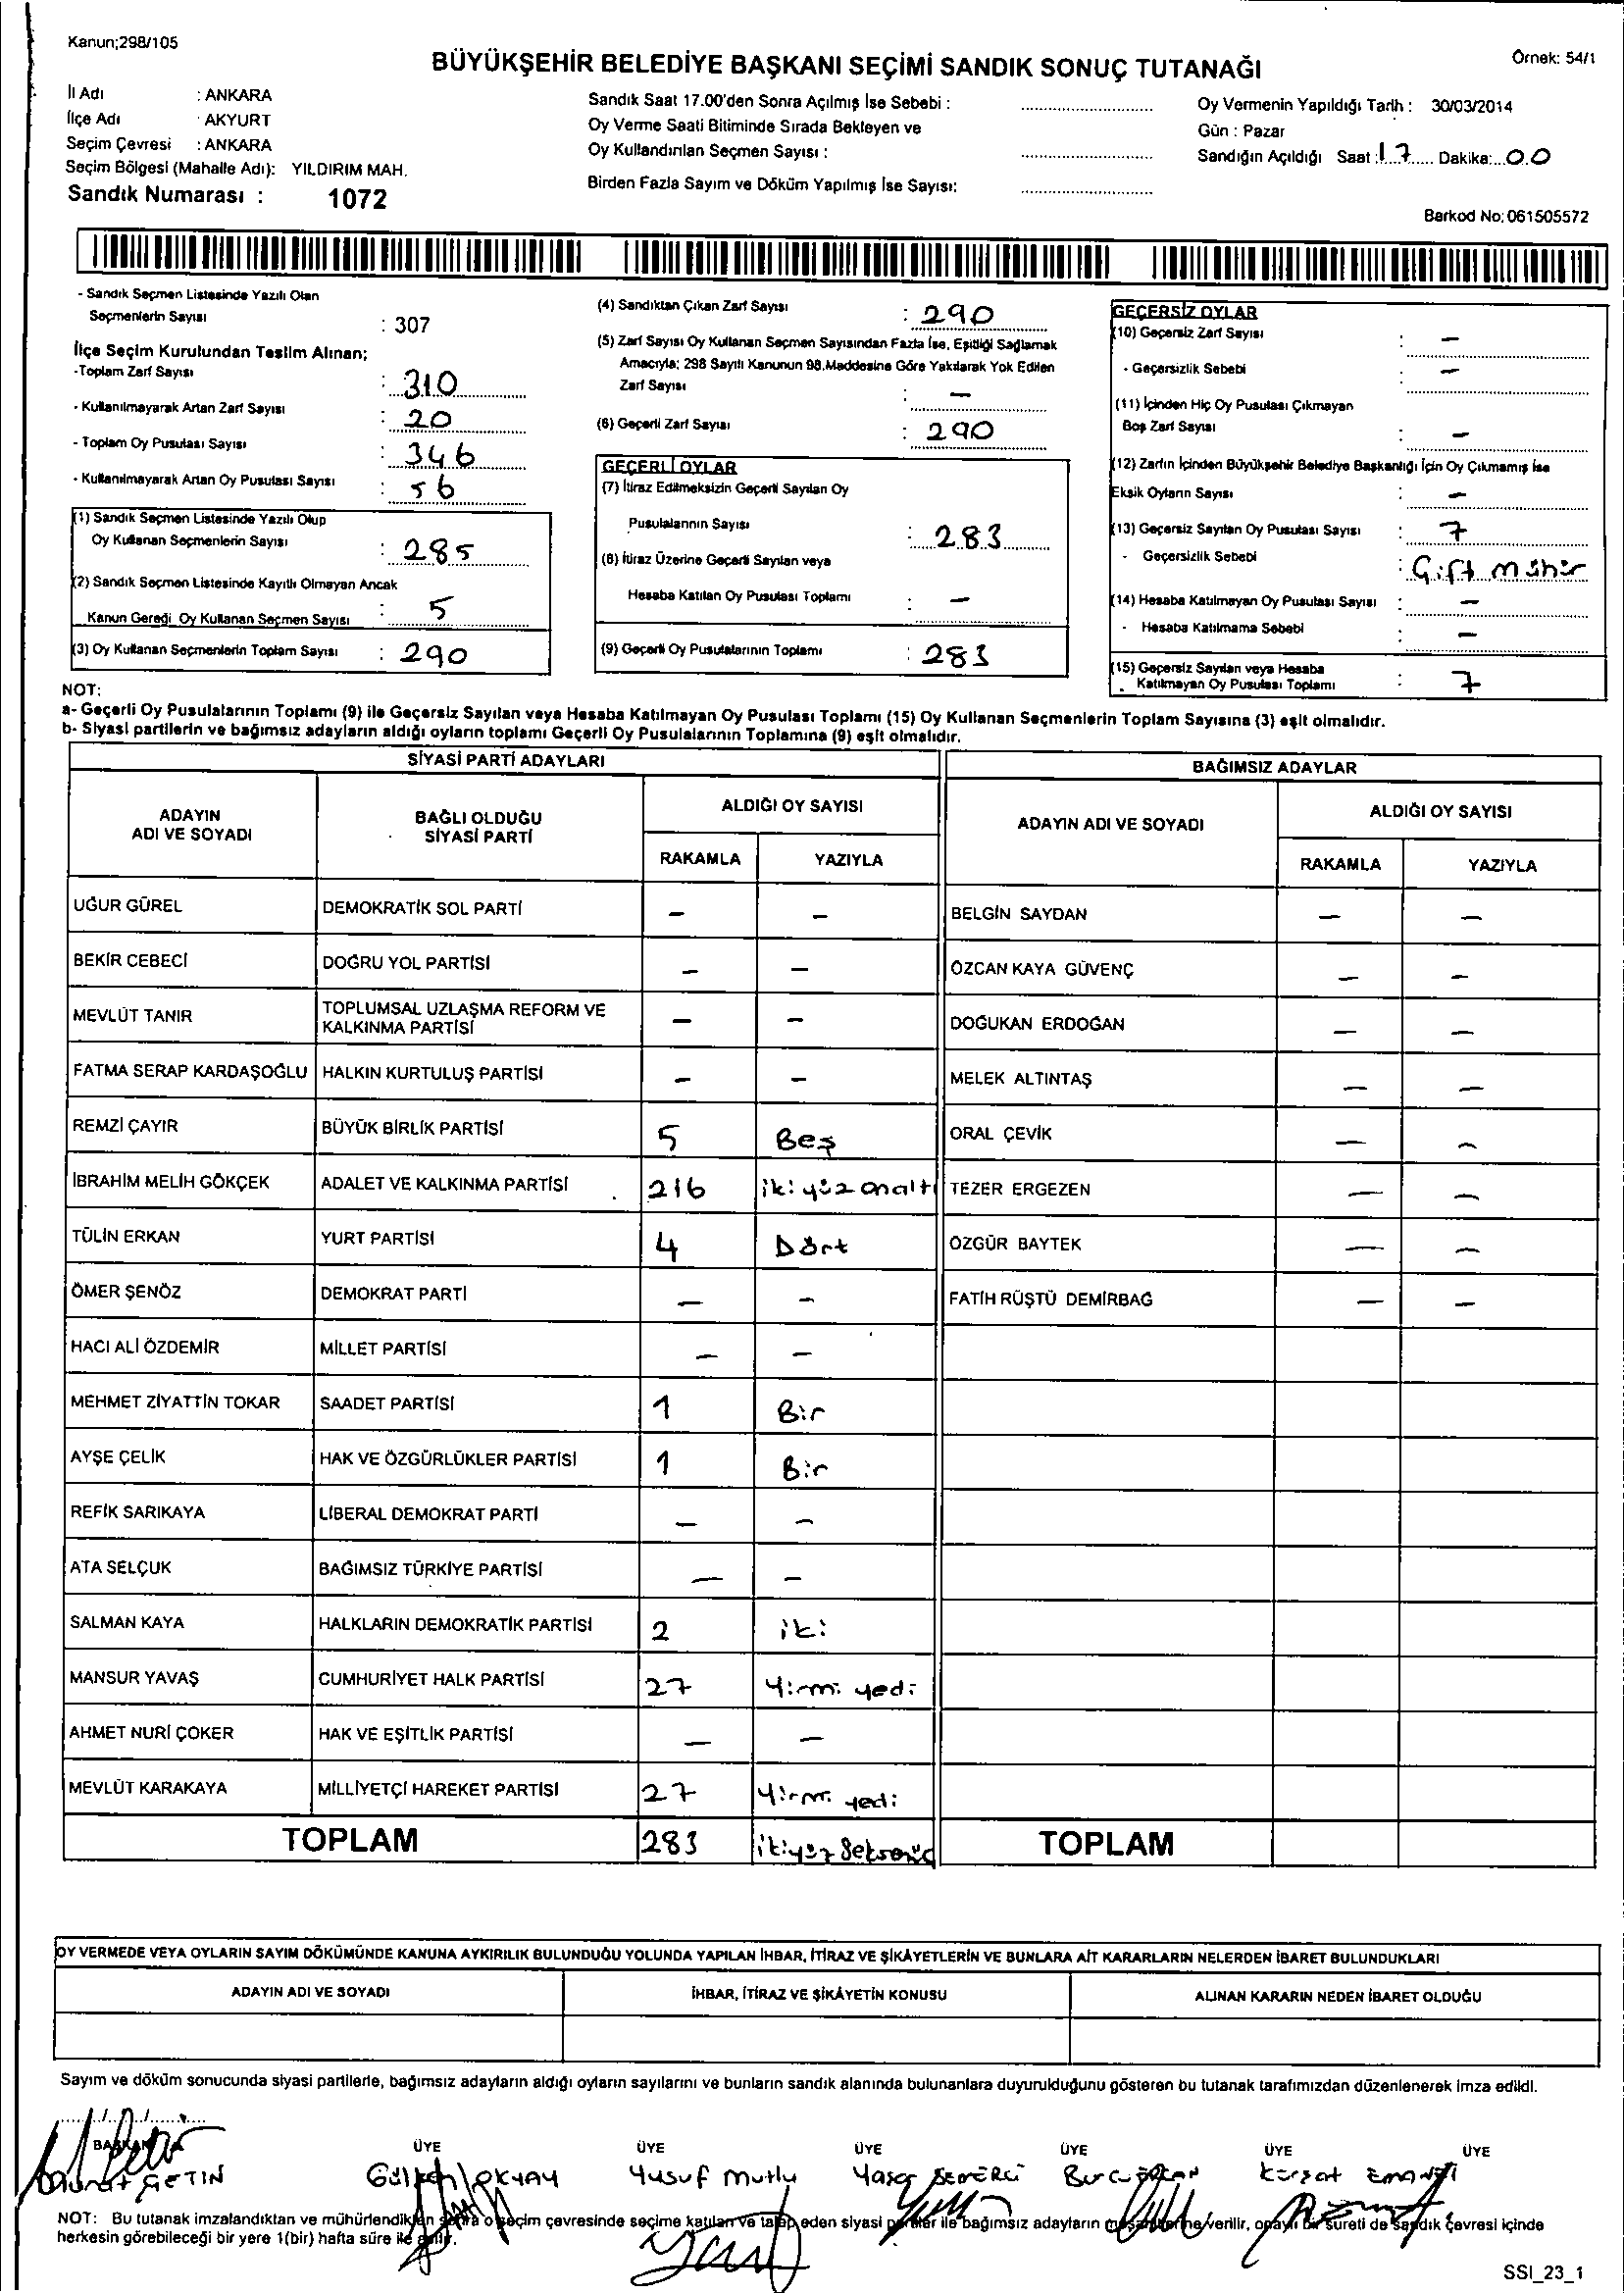 Kanun;298/105
BÜYÜKŞEHİR BELEDİYE BAŞKANI SEÇİMİ SANDIK SONUÇ TUTANAĞI
Örnek: 54/1
İl Adı : ANKARA
İlçe Adı : AKYURT
Seçim Çevresi : ANKARA
Seçim Bölgesi (Mahalle Adı): YILDIRIM MAH.
Sandık Numarası : 1072
Sandık Saat 17.00'den Sonra Açılmış İse Sebebi :
Oy Verme Saati Bitiminde Sırada Bekleyen ve
Oy Kullandırılan Seçmen Sayısı :
Birden Fazla Sayım ve Döküm Yapılmış İse Sayısı:
Oy Vermenin Yapıldığı Tarih : 30/03/2014
Gün : Pazar
Sandığın Açıldığı Saat : 17 Dakika: 00
Barkod No: 061505572
- Sandık Seçmen Listesinde Yazılı Olan
Seçmenlerin Sayısı : 307
İlçe Seçim Kurulundan Teslim Alınan;
-Toplam Zarf Sayısı : 310
- Kullanılmayarak Artan Zarf Sayısı : 20
- Toplam Oy Pusulası Sayısı : 346
- Kullanılmayarak Artan Oy Pusulası Sayısı : 56
(1) Sandık Seçmen Listesinde Yazılı Olup
Oy Kullanan Seçmenlerin Sayısı : 285
(2) Sandık Seçmen Listesinde Kayıtlı Olmayan Ancak
Kanun Gereği Oy Kullanan Seçmen Sayısı : 5
(3) Oy Kullanan Seçmenlerin Toplam Sayısı : 290
(4) Sandıktan Çıkan Zarf Sayısı : 290
(5) Zarf Sayısı Oy Kullanan Seçmen Sayısından Fazla İse, Eşitliği Sağlamak
Amacıyla; 298 Sayılı Kanunun 98.Maddesine Göre Yakılarak Yok Edilen
Zarf Sayısı : -
(6) Geçerli Zarf Sayısı : 290
GEÇERLİ OYLAR
(7) İtiraz Edilmeksizin Geçerli Sayılan Oy
Pusulalarının Sayısı : 283
(8) İtiraz Üzerine Geçerli Sayılan veya
Hesaba Katılan Oy Pusulası Toplamı : -
(9) Geçerli Oy Pusulalarının Toplamı : 283
GEÇERSİZ OYLAR
(10) Geçersiz Zarf Sayısı : -
- Geçersizlik Sebebi : -
(11) İçinden Hiç Oy Pusulası Çıkmayan
Boş Zarf Sayısı : -
(12) Zarfın İçinden Büyükşehir Belediye Başkanlığı İçin Oy Çıkmamış İse
Eksik Oyların Sayısı : -
(13) Geçersiz Sayılan Oy Pusulası Sayısı : 7
- Geçersizlik Sebebi : Çift mühür
(14) Hesaba Katılmayan Oy Pusulası Sayısı : -
- Hesaba Katılmama Sebebi : -
(15) Geçersiz Sayılan veya Hesaba
Katılmayan Oy Pusulası Toplamı : 7
NOT:
a- Geçerli Oy Pusulalarının Toplamı (9) ile Geçersiz Sayılan veya Hesaba Katılmayan Oy Pusulası Toplamı (15) Oy Kullanan Seçmenlerin Toplam Sayısına (3) eşit olmalıdır.
b- Siyasi partilerin ve bağımsız adayların aldığı oyların toplamı Geçerli Oy Pusulalarının Toplamına (9) eşit olmalıdır.
SİYASİ PARTİ ADAYLARI
ADAYIN ADI VE SOYADI
BAĞLI OLDUĞU SİYASİ PARTİ
ALDIĞI OY SAYISI
RAKAMLA YAZIYLA
UĞUR GÜREL DEMOKRATİK SOL PARTİ - -
BEKİR CEBECİ DOĞRU YOL PARTİSİ - -
MEVLÜT TANIR TOPLUMSAL UZLAŞMA REFORM VE KALKINMA PARTİSİ - -
FATMA SERAP KARDAŞOĞLU HALKIN KURTULUŞ PARTİSİ - -
REMZİ ÇAYIR BÜYÜK BİRLİK PARTİSİ 5 Beş
İBRAHİM MELİH GÖKÇEK ADALET VE KALKINMA PARTİSİ 216 iki yüz onaltı
TÜLİN ERKAN YURT PARTİSİ 4 Dört
ÖMER ŞENÖZ DEMOKRAT PARTİ - -
HACI ALİ ÖZDEMİR MİLLET PARTİSİ - -
MEHMET ZİYATTİN TOKAR SAADET PARTİSİ 1 Bir
AYŞE ÇELİK HAK VE ÖZGÜRLÜKLER PARTİSİ 1 Bir
REFİK SARIKAYA LİBERAL DEMOKRAT PARTİ - -
ATA SELÇUK BAĞIMSIZ TÜRKİYE PARTİSİ - -
SALMAN KAYA HALKLARIN DEMOKRATİK PARTİSİ 2 iki
MANSUR YAVAŞ CUMHURİYET HALK PARTİSİ 27 Yirmi yedi
AHMET NURİ ÇOKER HAK VE EŞİTLİK PARTİSİ - -
MEVLÜT KARAKAYA MİLLİYETÇİ HAREKET PARTİSİ 27 Yirmi yedi
TOPLAM 283 ikiyüz Seksenüç
BAĞIMSIZ ADAYLAR
ADAYIN ADI VE SOYADI
ALDIĞI OY SAYISI
RAKAMLA YAZIYLA
BELGİN SAYDAN - -
ÖZCAN KAYA GÜVENÇ - -
DOĞUKAN ERDOĞAN - -
MELEK ALTINTAŞ - -
ORAL ÇEVİK - -
TEZER ERGEZEN - -
ÖZGÜR BAYTEK - -
FATİH RÜŞTÜ DEMİRBAĞ - -
TOPLAM
OY VERMEDE VEYA OYLARIN SAYIM DÖKÜMÜNDE KANUNA AYKIRILIK BULUNDUĞU YOLUNDA YAPILAN İHBAR, İTİRAZ VE ŞİKÂYETLERİN VE BUNLARA AİT KARARLARIN NELERDEN İBARET BULUNDUKLARI
ADAYIN ADI VE SOYADI
İHBAR, İTİRAZ VE ŞİKÂYETİN KONUSU
ALINAN KARARIN NEDEN İBARET OLDUĞU
Sayım ve döküm sonucunda siyasi partilerle, bağımsız adayların aldığı oyların sayılarını ve bunların sandık alanında bulunanlara duyurulduğunu gösteren bu tutanak tarafımızdan düzenlenerek imza edildi.
BAŞKAN ÜYE ÜYE ÜYE ÜYE ÜYE ÜYE
Murat ÇETİN OKYAY Yusuf Mutlu Yaşar SEMERCİ Burcu Kürşat
NOT: Bu tutanak imzalandıktan ve mühürlendikten sonra o seçim çevresinde seçime katılan ve talep eden siyasi partiler ile bağımsız adayların müşahitlerine verilir, onaylı bir sureti de sandık çevresi içinde
herkesin görebileceği bir yere 1(bir) hafta süre ile asılır.
SSI_23_1